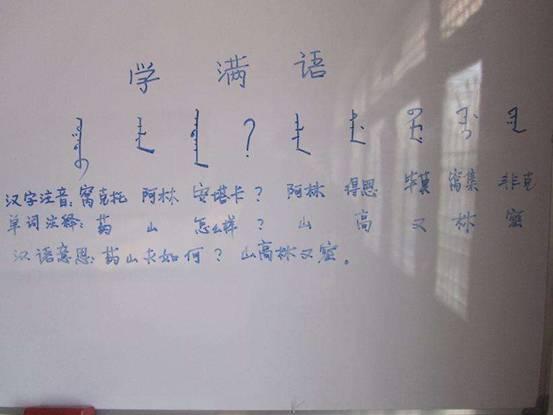 学 满 语
?
汉字注音:窝克托 阿林 安塔卡? 阿林 得恩 毕莫 窝集 非克
单词注释:药 山 怎么样? 山 高 又 林 密
汉语意思:药山夫如何? 山高林又密。